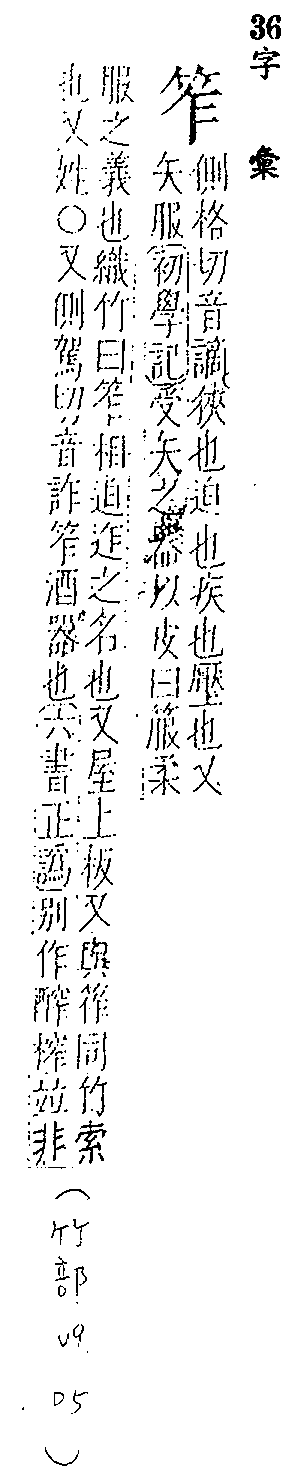 36字彙
笮
側格切音謫狹也迫也疾也壓也又
矢服初學記受矢之器以皮曰箙柔
服之義也織竹曰笮相迫迮之名也又屋上板又與筰同竹索
也又姓○又側駕切音詐笮酒器也六書正譌別作醡榨並非
(竹部 四 05)